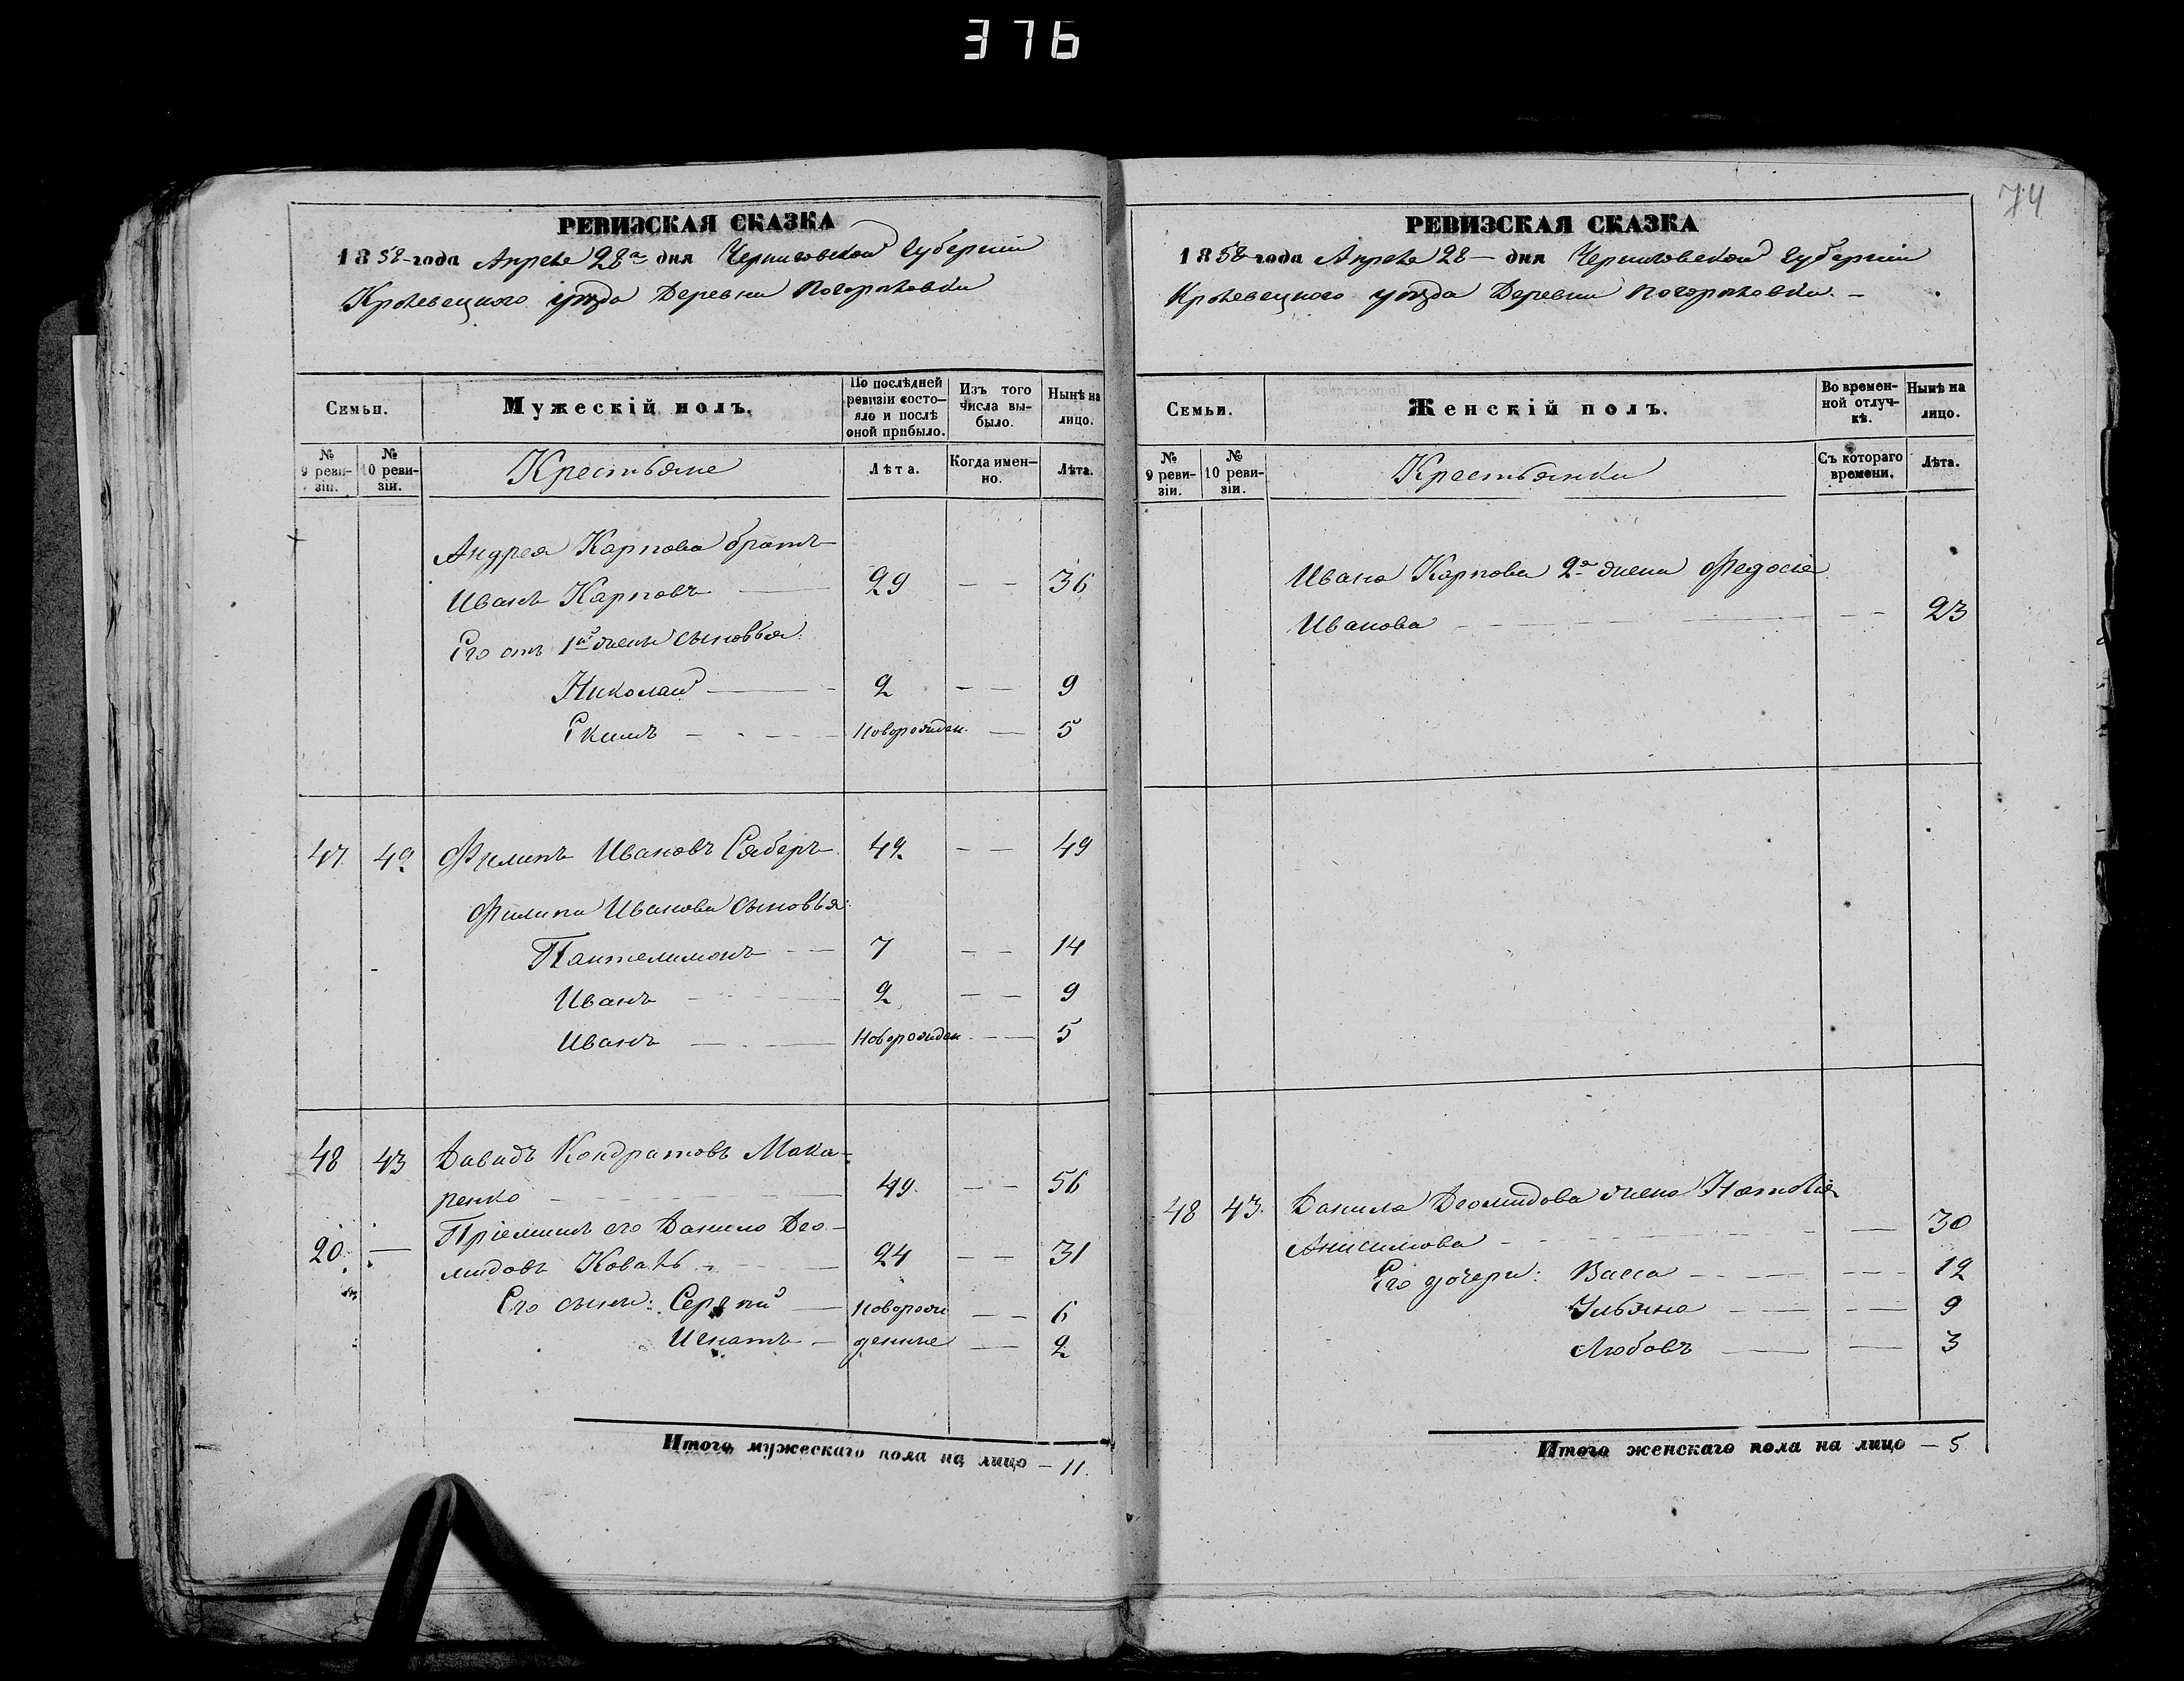 376
74
РЕВИЗСКАЯ СКАЗКА
1858 года Апреля 28го дня Черниговской Губернии
Кролевецкого уезда Деревни Погореловки
Семьи.
Мужескій полъ.
По послѣдней ревизіи состояло и послѣ оной прибыло.
Изъ того числа выбыло.
Нынѣ на лицо.
№ 9 ревизіи.
№ 10 ревизіи.
Крестьяне
Лѣта.
Когда именно.
Лѣта.
Андрея Карпова братъ
Иванъ Карповъ 29 — — 36
Его отъ 1й жены сыновья:
Николай 2 — — 9
Екимъ новорожден. — 5
47 42 Филипъ Ивановъ Сяберъ 42 — — 49
Филипа Иванова сыновья:
Пантелимонъ 7 — — 14
Иванъ 2 — — 9
Иванъ новорожден — — 5
48 43 Давидъ Кондратовъ Мака-
ренко 49 — — 56
20 — Пріемышъ его Данило Део-
мидовъ Коваль 24 — — 31
Его сыны: Сергѣй новорож — — 6
Игнатъ — денные — 2
Итого мужескаго пола на лицо — 11.
РЕВИЗСКАЯ СКАЗКА
1858 года Апреля 28 — дня Черниговской Губерніи
Кролевецкого уезда Деревни Погореловки. —
Семьи.
Женскій полъ.
Во временной отлучкѣ.
Нынѣ на лицо.
№ 9 ревизіи.
№ 10 ревизіи.
Крестьянки
Съ котораго времени.
Лѣта.
Ивана Карпова 2я жена Федосія
Иванова — — 23
48 43. Данила Деомидова жена Наталія
Анисимова — 30
Его дочери: Васса — — 12
Ульяна — — 9
Любовъ — — 3
Итого женскаго пола на лицо — 5